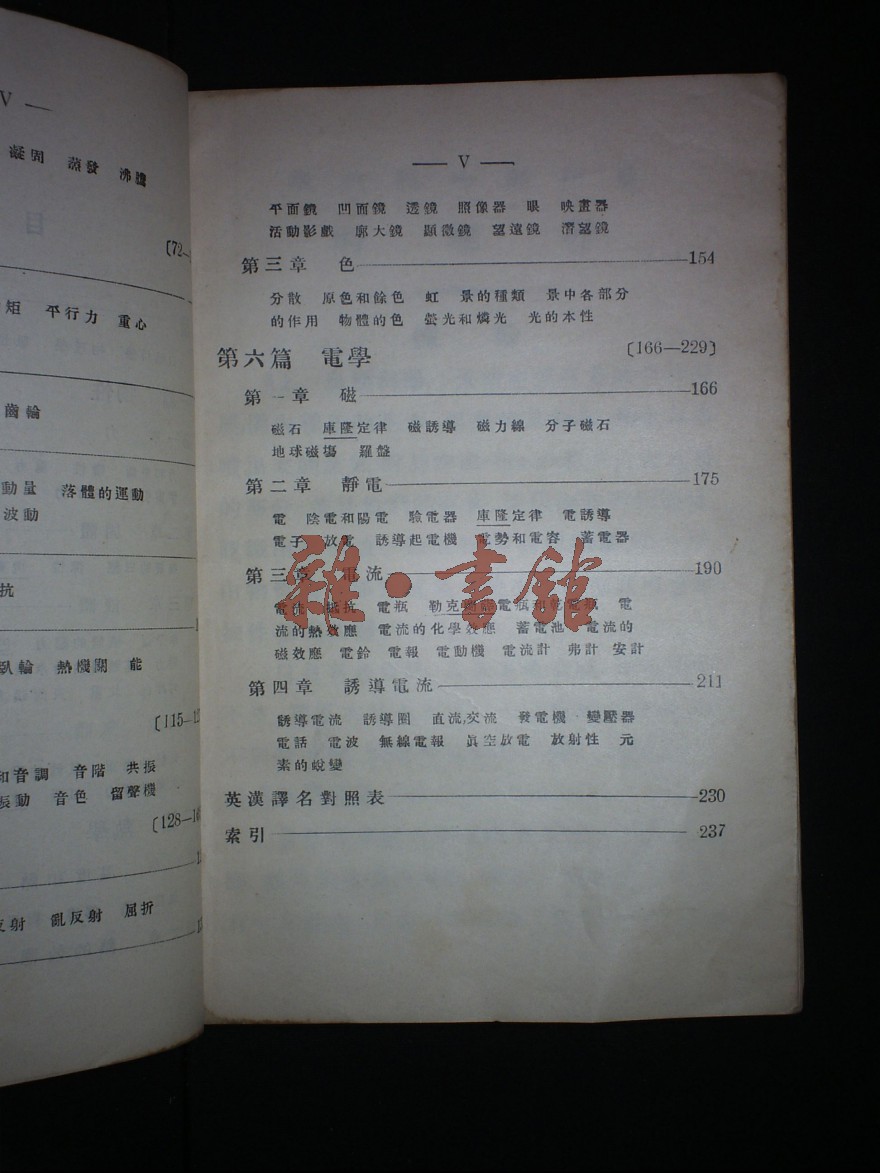 V —
凝固 蒸發 沸騰
〔72—
矩 平行力 重心
齒輪
動量 落體的運動
波動
抗
輪 熱機關 能
〔115—12
和音調 音階 共振
振動 音色 留聲機
〔128—1
反射 亂反射 屈折
— V —
平面鏡 凹面鏡 透鏡 照像器 眼 映畫器
活動影戲 廓大鏡 顯微鏡 望遠鏡 潛望鏡
第三章 色 154
分散 原色和餘色 虹 景的種類 景中各部分
的作用 物體的色 螢光和燐光 光的本性
第六篇 電學 〔166—229〕
第一章 磁 166
磁石 庫隆定律 磁誘導 磁力線 分子磁石
地球磁場 羅盤
第二章 靜電 175
電 陰電和陽電 驗電器 庫隆定律 電誘導
電子 放電 誘導起電機 電勢和電容 蓄電器
第三章 電流 190
電流 抵抗 電瓶 勒克蘭社電瓶和乾電瓶 電
流的熱效應 電流的化學效應 蓄電池 電流的
磁效應 電鈴 電報 電動機 電流計 弗計 安計
第四章 誘導電流 211
誘導電流 誘導圈 直流,交流 發電機 變壓器
電話 電波 無線電報 眞空放電 放射性 元
素的蛻變
英漢譯名對照表 230
索引 237
雜·書館